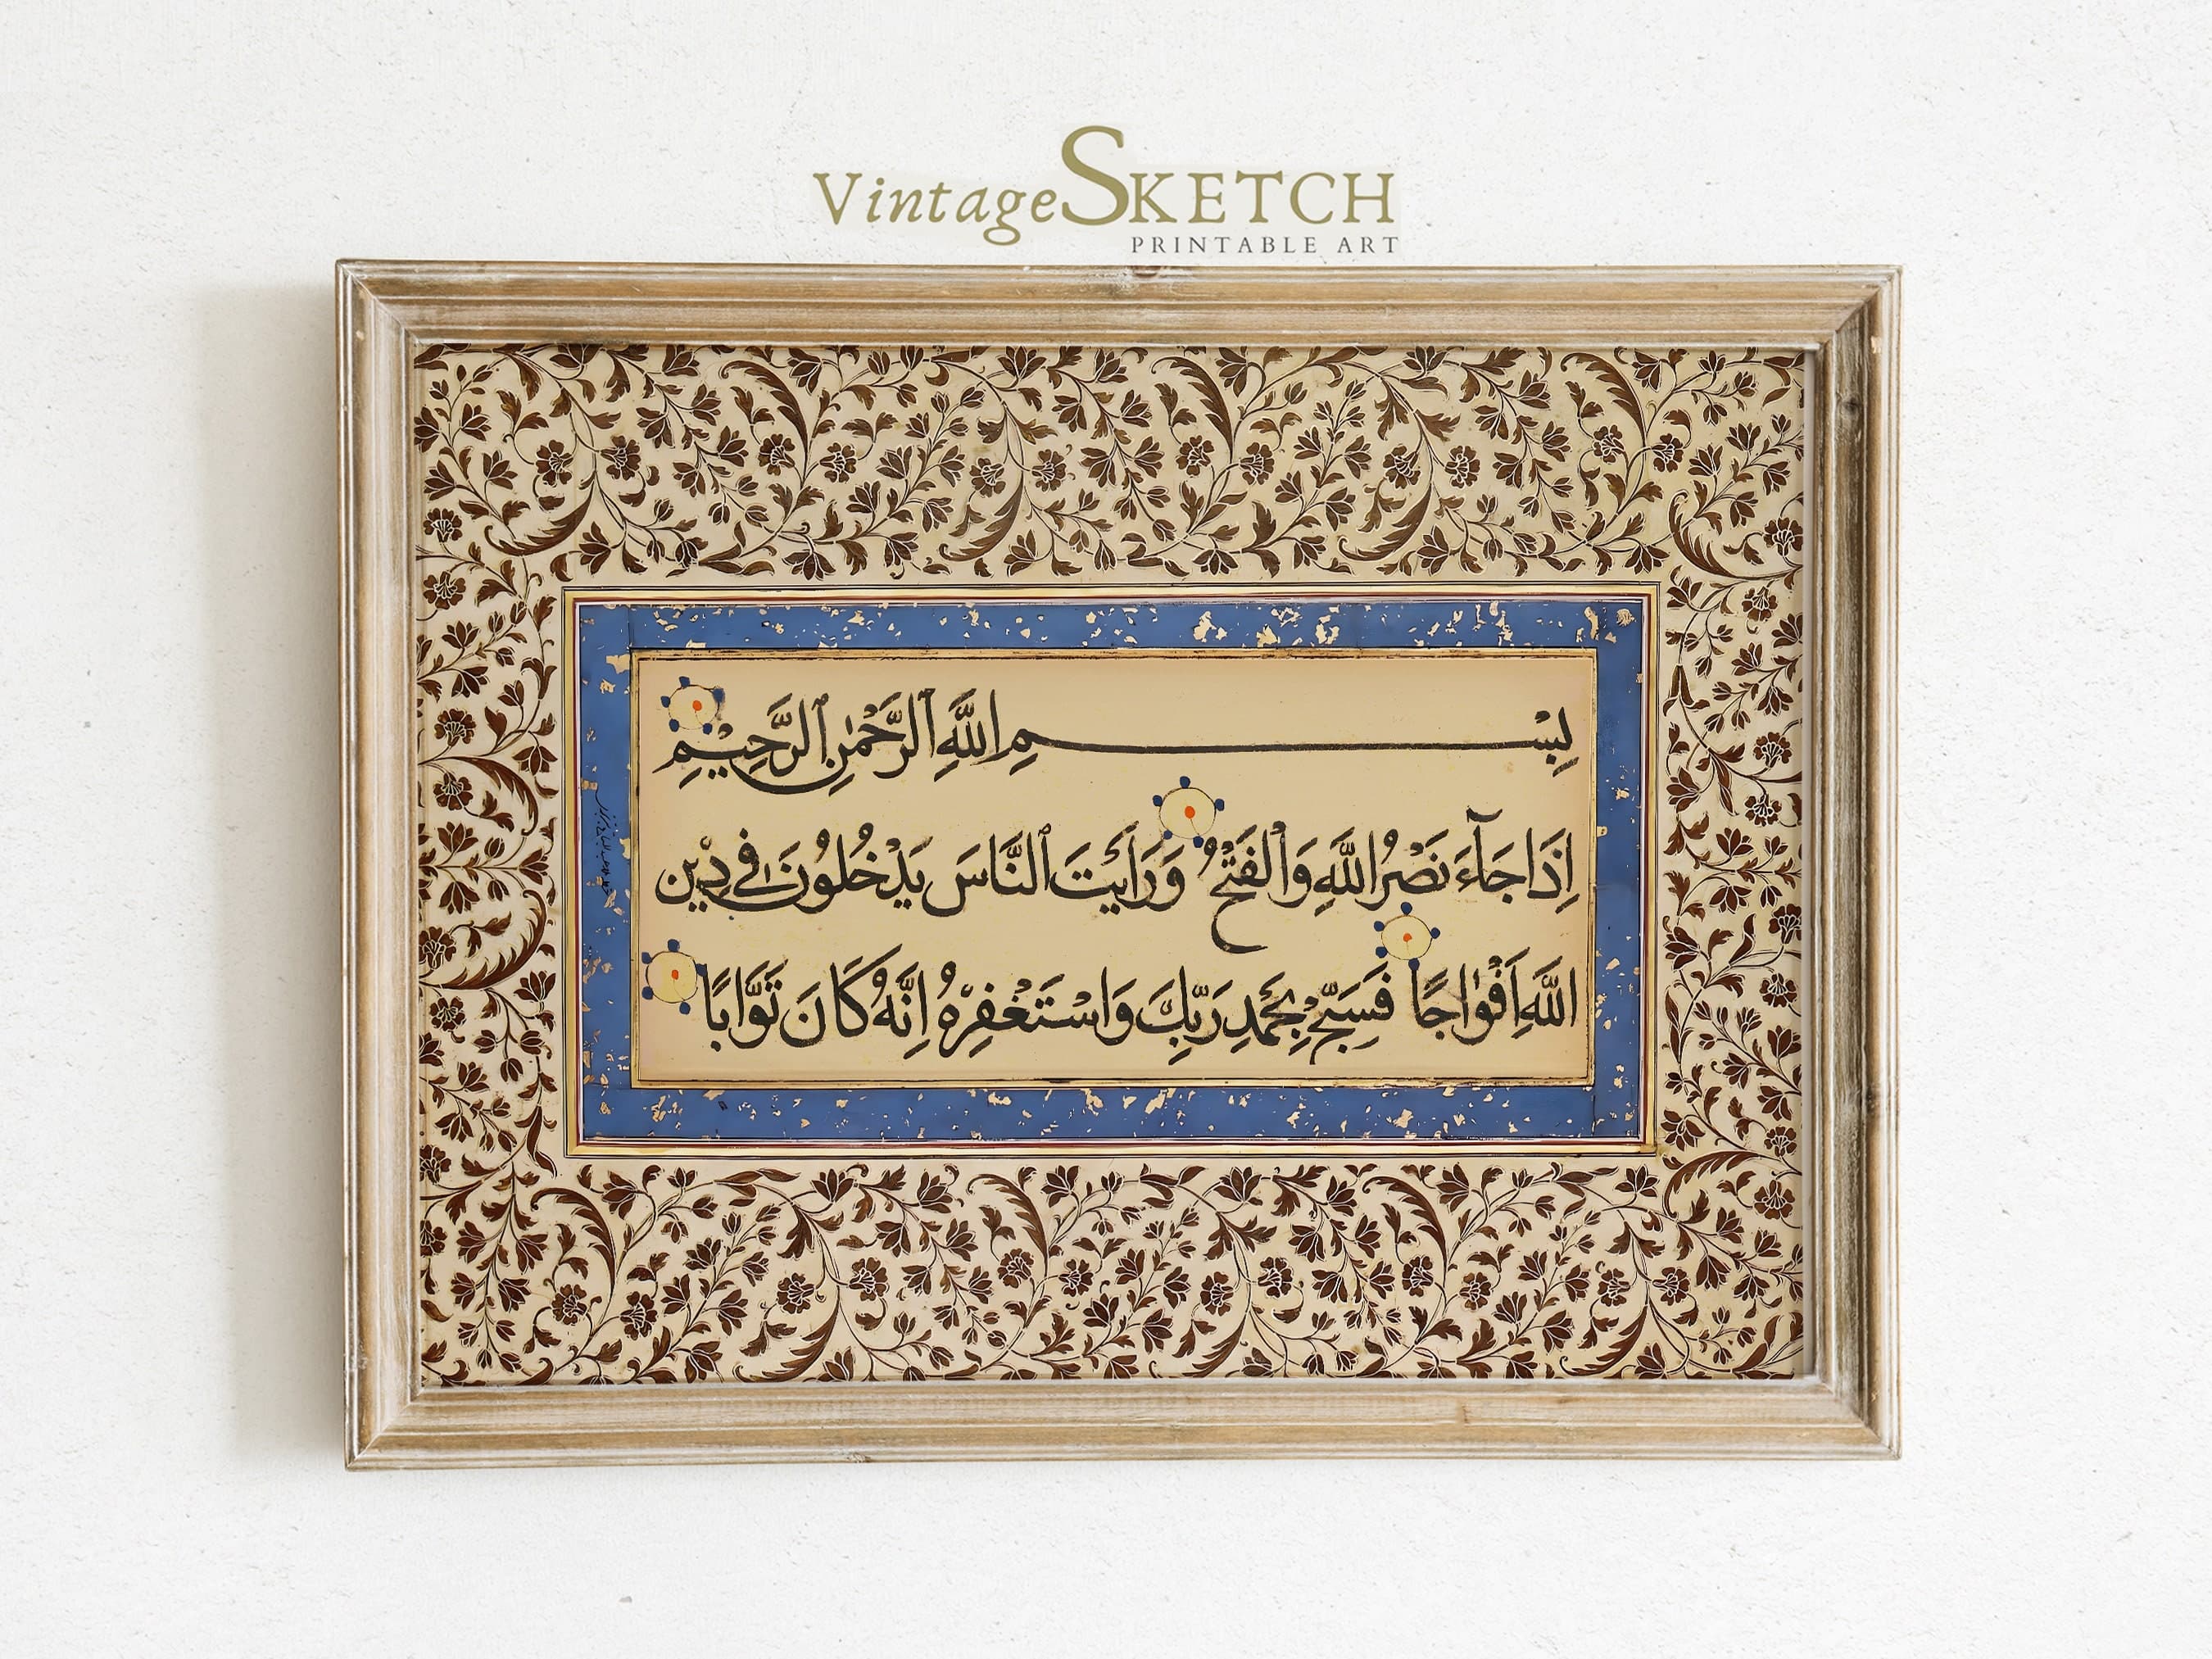 VintageSKETCH
PRINTABLE ART
بِسْمِ اللَّهِ ٱلرَّحْمٰنِ ٱلرَّحِيمِ
إِذَا جَآءَ نَصْرُ اللَّهِ وَٱلْفَتْحُ وَرَأَيْتَ ٱلنَّاسَ يَدْخُلُونَ فِي دِيْنِ
اللَّهِ اَفْوَاجًا فَسَبِّحْ بِحَمْدِ رَبِّكَ وَاسْتَغْفِرْهُ اِنَّهُ كَانَ تَوَّابًا